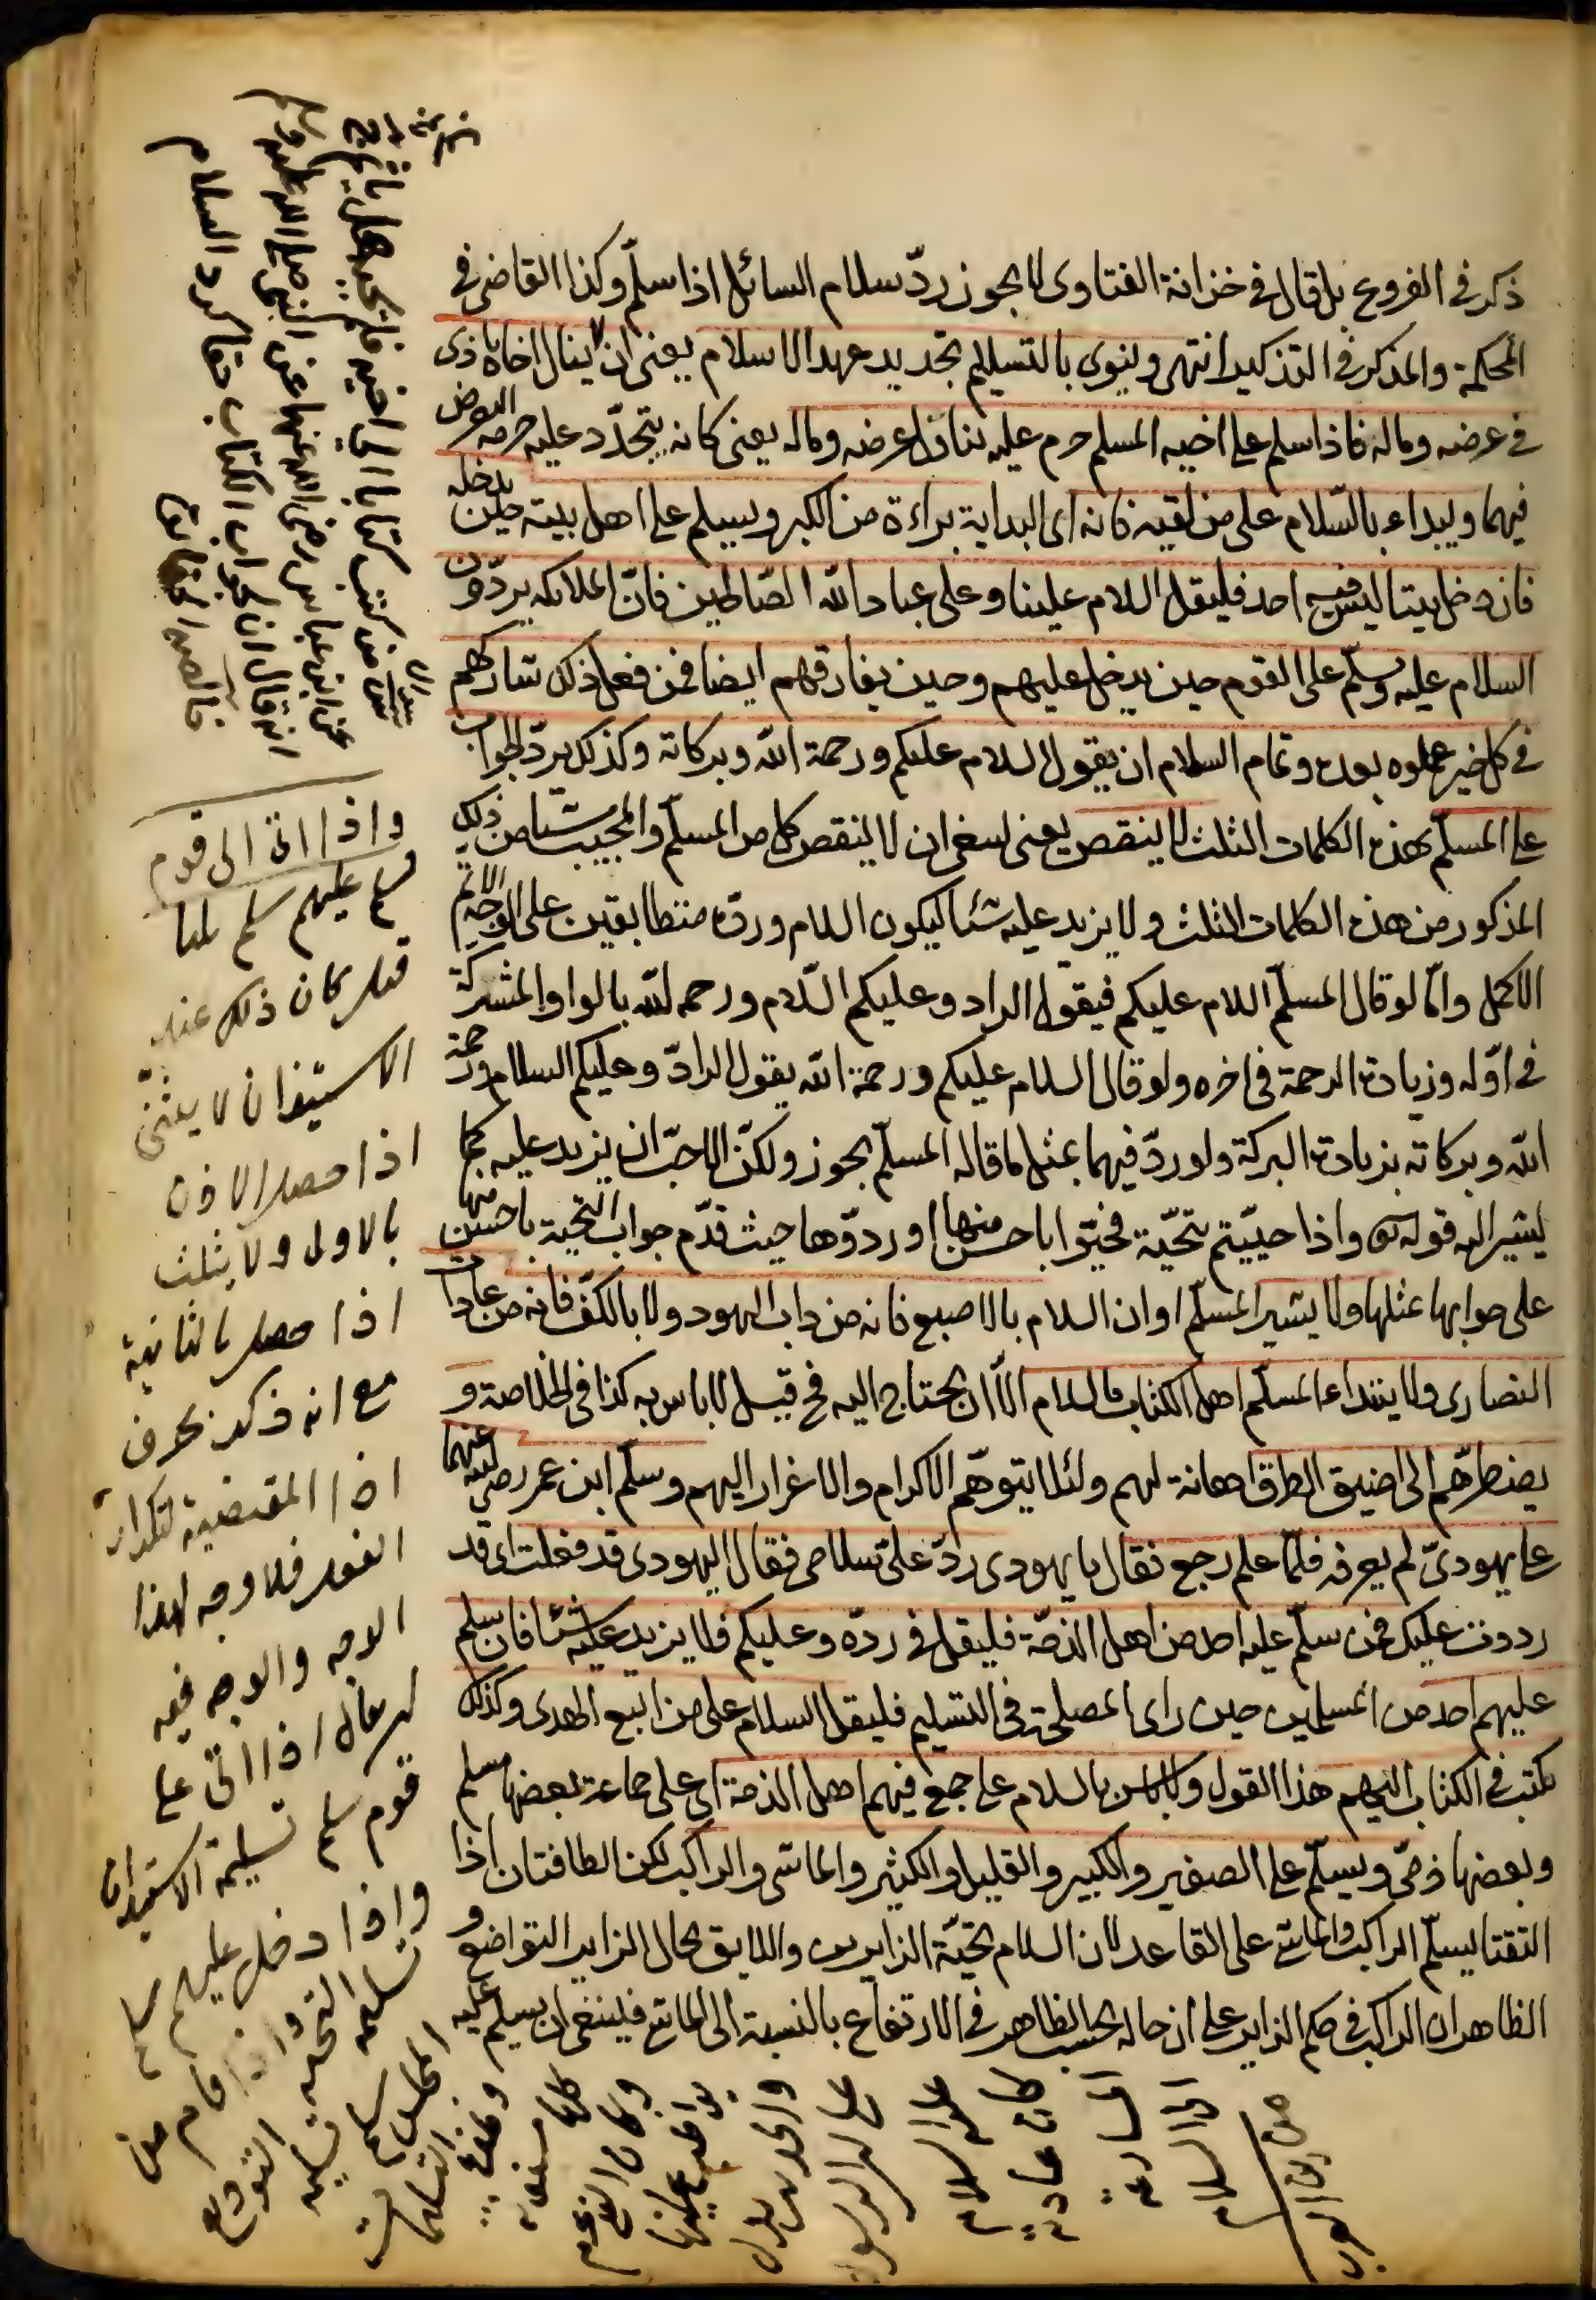 ذكر في الفروع بل قال في خزانة الفتاوى لا يجوز ردّ سلام السائل اذا سلّم وكذا القاضي في
المحكمة والمذكر في التذكير انتهى وينوى بالتسليم تجديد عهد الاسلام يعنى ان لا ينال اخاه باذى
في عرضه وماله فاذا سلم على اخيه المسلم حرم عليه تناول عرضه وماله يعنى كانه يتجدّد عليه حرمة التعرض
فيهما ويبداء بالسّلام على من لقيه فانه اى البداية براءة من الكبر ويسلم على اهل بيته حين يدخله
فان دخل بيتا ليس فيه احد فليقل السلام علينا وعلى عباد الله الصّالحين فانّ الملائكه يردّون
السلام عليه ويسلّم على القوم حين يدخل عليهم وحين يفارقهم ايضا فمن فعل ذلك شاركهم
في كل خير عملوه بعده وتمام السلام ان يقول السلام عليكم ورحمة الله وبركاته وكذلك يردّ الجواب
على المسلّم بهذه الكلمات الثلث لا ينقص يعنى ينبغي ان لا ينقص كل من المسلّم والمجيب شيئا من ذلك
المذكور من هذه الكلمات الثلث ولا يزيد عليه شئا ليكون السلام وردّه متطابقين على الوجه الاتم
الاكمل وامّا لو قال المسلّم السلام عليكم فيقول الراد وعليكم السّلام ورحمه الله بالواو المشركة
في اوّله وزيادة الرحمة في اخره ولو قال السلام عليكم ورحمة الله يقول الرادّ وعليكم السلام ورحمة
الله وبركاته بزيادة البركة ولو ردّ فيهما بمثل ما قاله المسلّم يجوز ولكنّ الاحبّ ان يزيد عليه كما
يشير اليه قوله تعالى واذا حيّيتم بتحيّة فحيّوا باحسن منها او ردّوها حيث قدّم جواب التحية باحسن منها
على جوابها بمثلها ولا يشير المسلّم اوان السلام بالاصبع فانه من داب اليهود ولا بالكفّ فانه من عادات
النصارى ولا يبتداء المسلّم اهل الكتاب بالسلام الّا ان يحتاج اليه فح قيل لا باس به كذا في الخلاصة و
يضطرّهم الى اضيق الطرق اهانة لهم ولئلا يتوهّم الاكرام والاغرار اليهم وسلّم ابن عمر رضي الله عنهما
على يهوديّ لم يعرفه فلمّا علم رجع فقال يا يهودى ردّ علىّ سلامى فقال اليهودى قد فعلت اى قد
رددت عليك فمن سلّم عليه احد من اهل الذمّة فليقل في ردّه وعليكم فلا يزيد عليه شئا فان سلم
عليهم احد من المسلمين حين راى المصلحة في التسليم فليقل السلام على من اتبع الهدى وكذلك
يكتب في الكتاب اليهم هذا القول ولا باس بالسلام على جمع فيهم اهل الذمة اى على جماعة بعضها مسلم
وبعضها ذمّى ويسلّم على الصغير والكبير والقليل والكثير والماشى والراكب لكن الطائفتان اذا
التقتا يسلّم الراكب والماشى على القاعد لان السلام تحيّة الزايرين واللايق بحال الزاير التواضع و
الظاهر ان الراكب في حكم الزاير على ان حاله بحسب الظاهر في الارتفاع بالنسبة الى الماشى فينبغى ان يسلم عليه
من كتب كتابا الى اخيه فلم يجبه هل يأثم
عن ابن عباس رضي الله عنهما عن النبي صلى الله عليه وسلم
انه قال ان لجواب الكتاب حقا كرد السلام
واذا اتى الى قوم
سلم عليهم سلم ثلثا
قيل كان ذلك عند
الاستيذان لا يعنى
اذا حصل الاذن
بالاول ولا يثلث
اذا حصل بالثانية
مع انه ذكر بحرف
اذا المقتضية لتكرار
الفعل فلا وجه لهذا
الوجه والوجه فيه
ان يقال اذا اتى على
قوم سلم تسليمة الاستيذان
واذا دخل عليهم سلم
تسليمة التحية واذا قام من
المجلس سلم تسليمة التوديع